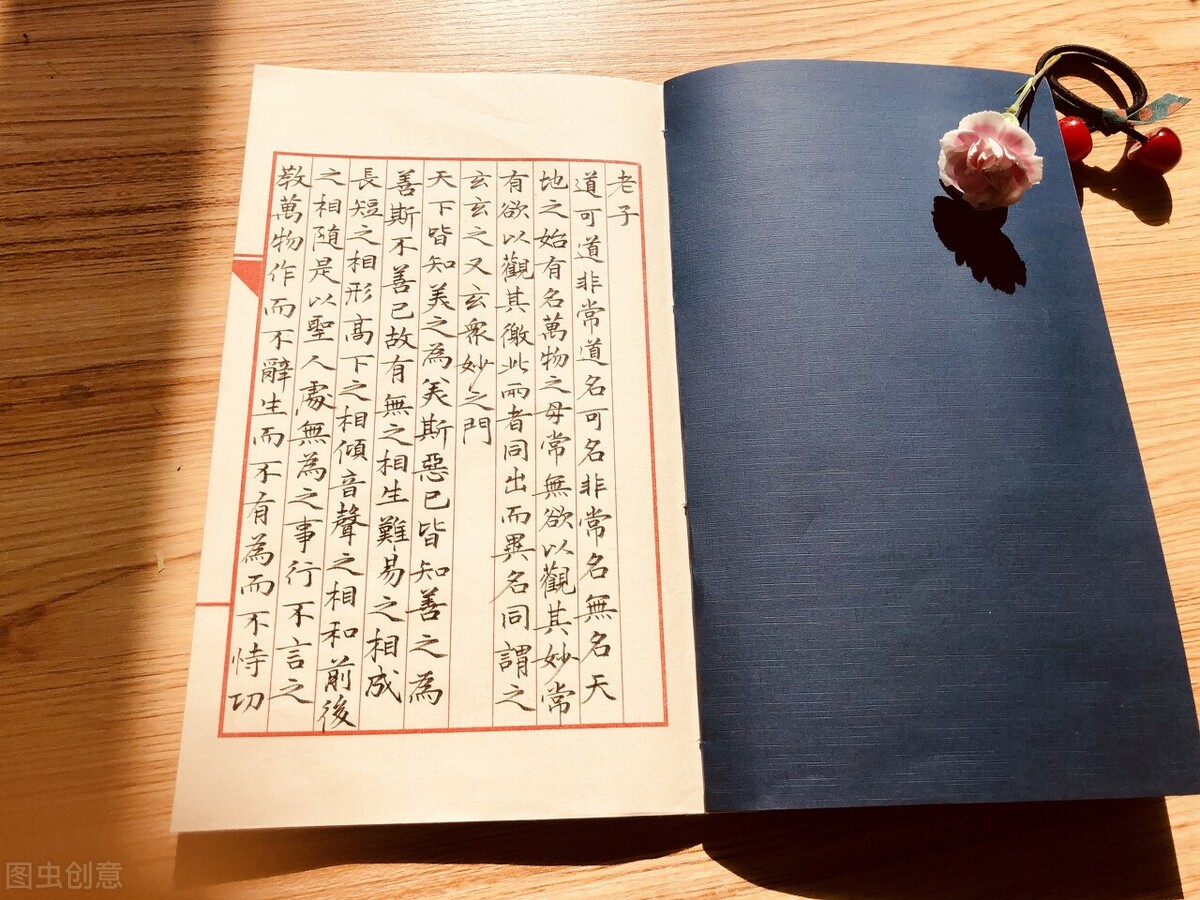 老子
道可道非常道名可名非常名無名天
地之始有名萬物之母常無欲以觀其妙常
有欲以觀其徼此兩者同出而異名同謂之
玄玄之又玄衆妙之門
天下皆知美之為美斯惡已皆知善之為
善斯不善已故有無之相生難易之相成
長短之相形高下之相傾音聲之相和前後
之相隨是以聖人處無為之事行不言之
教萬物作而不辭生而不有為而不恃功
图虫创意